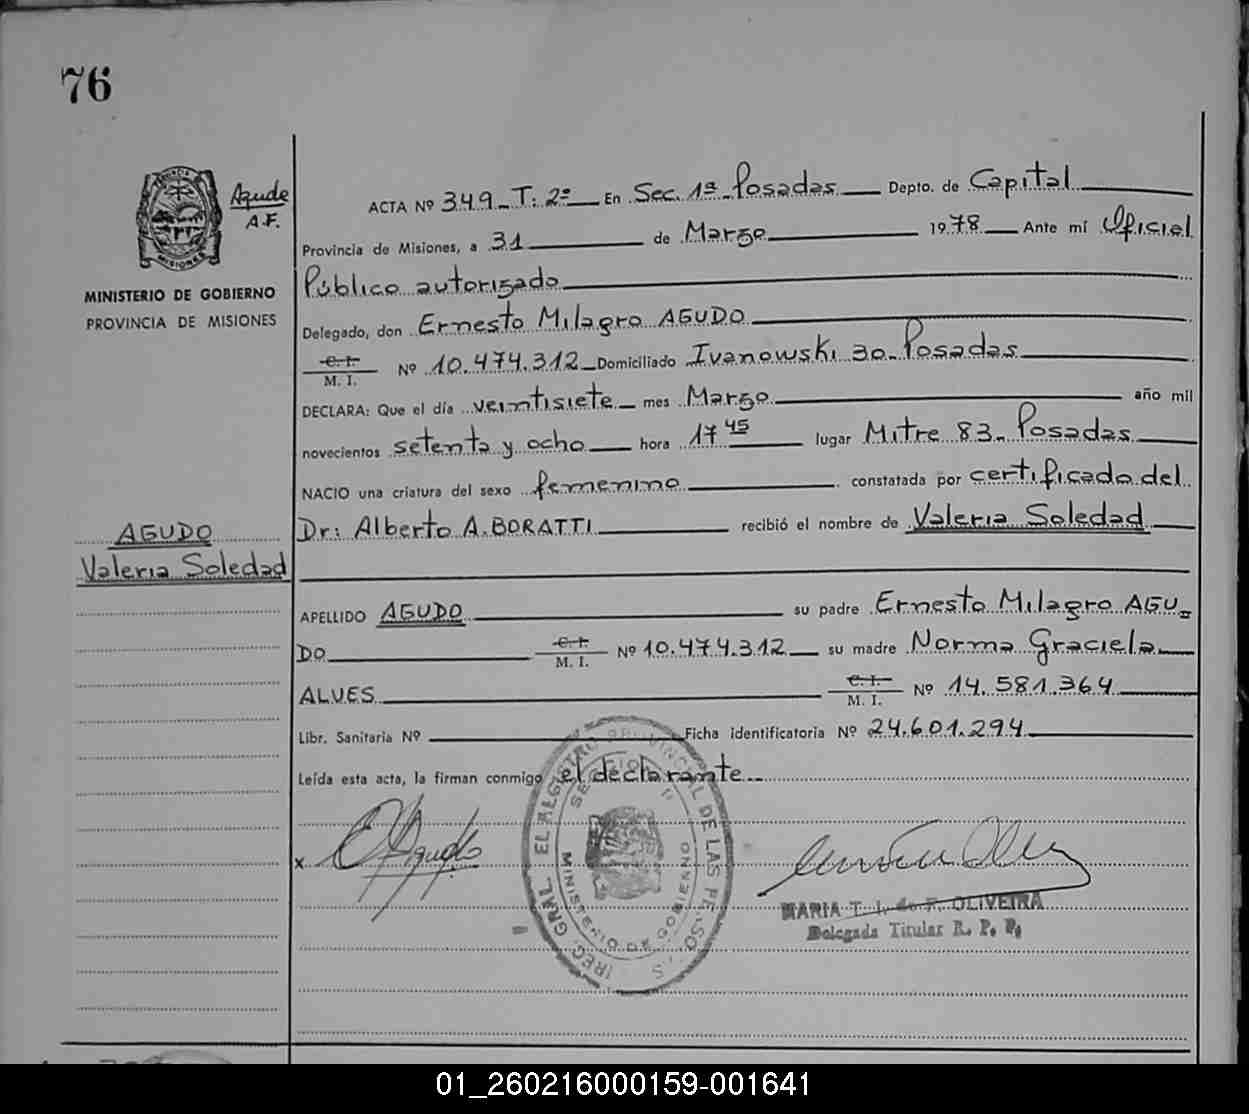 76
Agudo
A.F.
MINISTERIO DE GOBIERNO
PROVINCIA DE MISIONES
AGUDO
Valeria Soledad
ACTA Nº 349 - T: 2º En Sec. 1ª Posadas Depto. de Capital
Provincia de Misiones, a 31 de Marzo 1978 Ante mí Oficial
Público autorizado
Delegado, don Ernesto Milagro AGUDO
C. I. M. I. Nº 10.474.312 Domiciliado Ivanowski 30 - Posadas
DECLARA: Que el día veintisiete mes Marzo año mil
novecientos setenta y ocho hora 17 45 lugar Mitre 83 - Posadas
NACIO una criatura del sexo femenino constatada por certificado del
Dr: Alberto A. BORATTI recibió el nombre de Valeria Soledad
APELLIDO AGUDO su padre Ernesto Milagro AGU-
DO C. I. M. I. Nº 10.474.312 su madre Norma Graciela
ALVES C. I. M. I. Nº 14.581.364
Libr. Sanitaria Nº Ficha identificatoria Nº 24.601.294
Leída esta acta, la firman conmigo el declarante
x EAgudo
MINISTERIO DE GOBIERNO
MARIA T. I. de F. OLIVEIRA
Delegada Titular R. P. P.
01_260216000159-001641